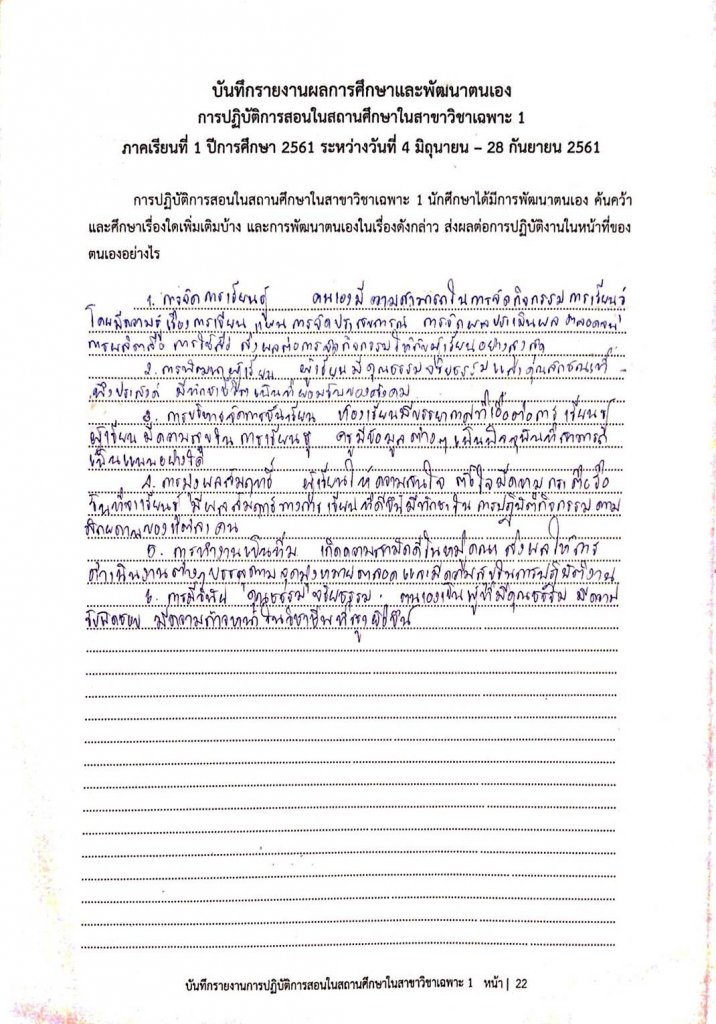 บันทึกรายงานผลการศึกษาและพัฒนาตนเอง
การปฏิบัติการสอนในสถานศึกษาในสาขาวิชาเฉพาะ 1
ภาคเรียนที่ 1 ปีการศึกษา 2561 ระหว่างวันที่ 4 มิถุนายน – 28 กันยายน 2561
การปฏิบัติการสอนในสถานศึกษาในสาขาวิชาเฉพาะ 1 นักศึกษาได้มีการพัฒนาตนเอง ค้นคว้า
และศึกษาเรื่องใดเพิ่มเติมบ้าง และการพัฒนาตนเองในเรื่องดังกล่าว ส่งผลต่อการปฏิบัติงานในหน้าที่ของ
ตนเองอย่างไร
1. การจัดการเรียนรู้ ตนเองมีความสามารถในการจัดกิจกรรมการเรียนรู้
โดยมีความรู้เรื่องการเรียน การจัดประสบการณ์ การวัดผลประเมินผล ตลอดจน
การผลิตสื่อ การใช้สื่อ ส่งผลต่อการจัดกิจกรรมให้กับผู้เรียนอย่าง
2. การพัฒนาผู้เรียน ผู้เรียนมีคุณธรรมจริยธรรม และคุณลักษณะที่
พึงประสงค์ มีทักษะชีวิต เป็นที่ยอมรับของสังคม
3. การบริหารจัดการชั้นเรียน ห้องเรียนมีบรรยากาศที่เอื้อต่อการเรียนรู้
ผู้เรียนมีความสุขในการเรียนรู้ ครูมีข้อมูลต่างๆ เป็น
เป็นแบบอย่างได้
4. การมุ่งผลสัมฤทธิ์ ผู้เรียนให้ความสนใจ ตั้งใจ มีความกระตือรือ
ร้นที่จะเรียนรู้ มีผลสัมฤทธิ์ทางการเรียนที่ดีขึ้น มีทักษะในการปฏิบัติกิจกรรมตาม
ศักยภาพของแต่ละคน
5. การทำงานเป็นทีม เกิดความสามัคคีในหมู่คณะ ส่งผลให้การ
ดำเนินงานต่างๆ บรรลุตามจุดมุ่งหมายตลอด และมีความสุขในการปฏิบัติงาน
6. การมีวินัย คุณธรรม จริยธรรม ตนเองเป็นผู้ที่มีคุณธรรม มีความ
รับผิดชอบ มีความก้าวหน้าในวิชาชีพที่สูงยิ่งขึ้น
บันทึกรายงานการปฏิบัติการสอนในสถานศึกษาในสาขาวิชาเฉพาะ 1 หน้า | 22